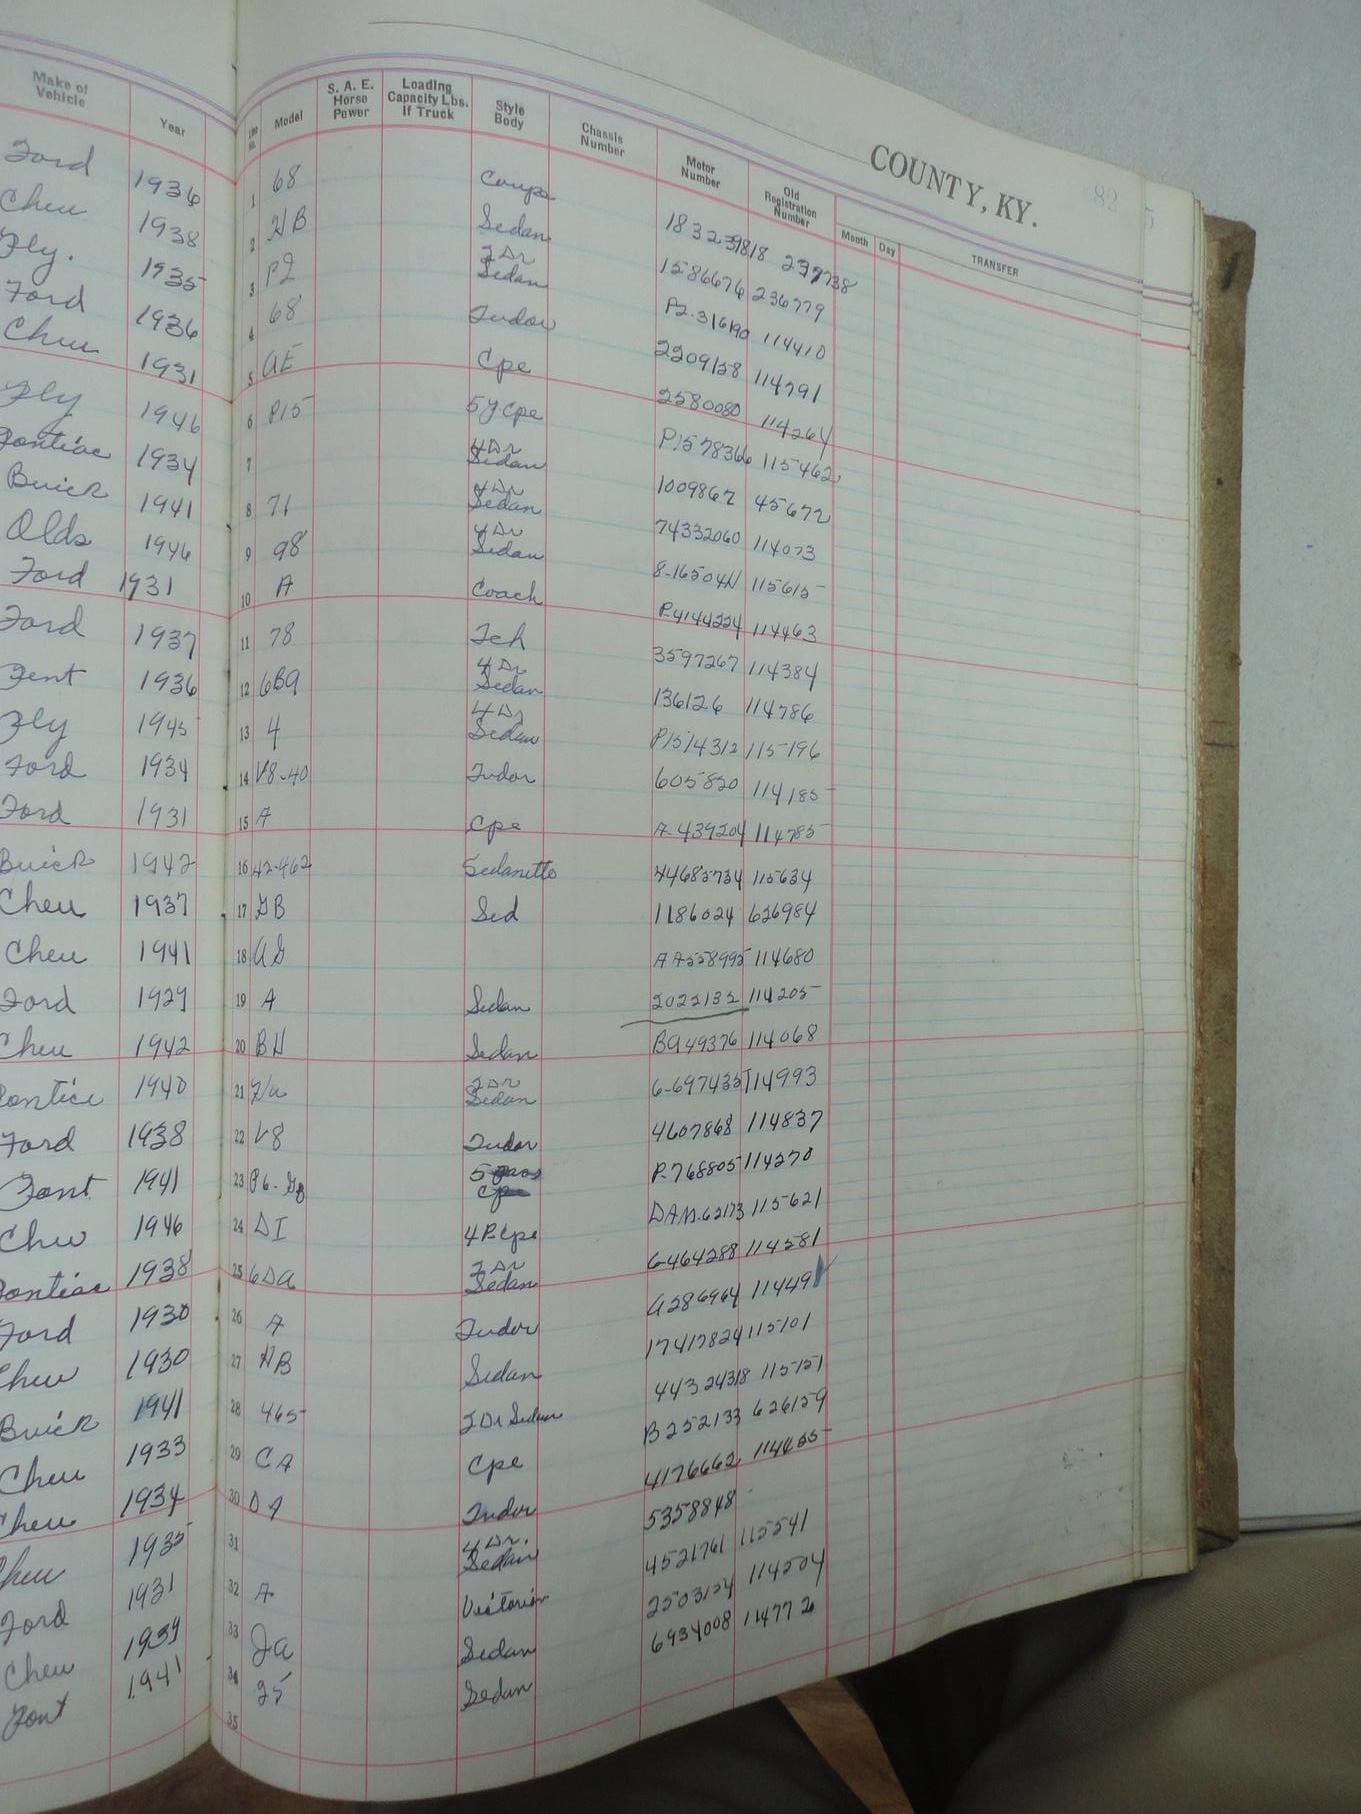 COUNTY, KY. 82
Make of Vehicle Year Line No. Model S. A. E. Horse Power Loading Capacity Lbs. if Truck Style Body Chassis Number Motor Number Old Registration Number Month Day TRANSFER
Ford 1936 1 68 Coupe 18 3239818
Chev 1938 2 HB Sedan 1586676 236779
Ply. 1935 3 PJ 2 Dr Sedan 114410
Ford 1936 4 68 Tudor 2209158 114791
Chev 1931 5 AE Cpe 2580080 114264
Ply 1946 6 P15 Cpe P1578366 115462
Pontiac 1934 7 4 Dr Sedan 1009867 45672
Buick 1941 8 71 4 Dr Sedan 74332060 114073
Olds 1946 9 98 4 Dr Sedan 115615
Ford 1931 10 A Coach 114463
Ford 1937 11 78 3597267 114384
Pont 1936 12 6BA 4 Dr Sedan 136126 114786
Ply 1945 13 4 4 Dr Sedan P1514312 115196
Ford 1934 14 V8-40 Tudor 605820 114185
Ford 1931 15 A Cpe A-439204 114785
Buick 1942 16 42-462 Sedanette 44685734 115634
Chev 1937 17 GB Sed 1186024 626984
Chev 1941 18 AG AA558995 114680
Ford 1929 19 A Sedan 2022132 114205
Chev 1942 20 BH Sedan BA49376 114068
Pontiac 1940 21 2 Dr Sedan 6-697435 114993
Ford 1938 22 V8 Tudor 4607868 114837
Pont 1941 23 5 P-768805 114270
Chev 1946 24 DJ 4 P. Cpe DAM-62173 115621
Pontiac 1938 25 6DA 2 Dr Sedan 6-464288 114581
Ford 1930 26 A Tudor A286964 11449
Chev 1930 27 HB Sedan 17417824 115101
Buick 1941 28 465 2 Dr Sedan 44324318 115151
Chev 1933 29 CA Cpe B252133 626159
Chev 1934 30 DA Tudor 4176662
Chev 1935 31 4 Dr. Sedan 5358848
Ford 1931 32 A Victoria 4521761 115541
Chev 1939 33 JA Sedan 2503154 114504
Pont 1941 34 25 Sedan 6934008 114772
35